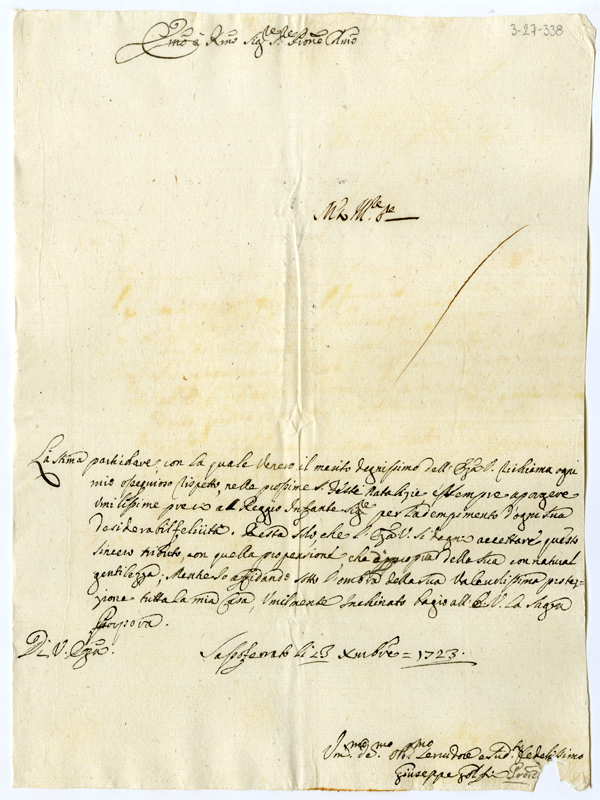 3-27-338
Emo e Rmo Sig.re Pne Colmo
La stima particolare, con la quale venero il merito degnissimo dell' Eza V. richiama ogni
mio ossequioso rispetto, nelle prossime S. Feste Natalizie sempre a porgere
umilissime preci al Reggio Infante Sig.re per l'adempimento d'ogni sua
desiderabil felicità. Resta solo, che l' Eza V. si degni accettare questo
sincero tributo, con quella propensione, che è propria della sua con natural
gentilezza; Mentre Io affidando sotto l'ombra della sua valevolissima protez-
zione tutta la mia Casa, umilmente Inchinato bagio all' E. V. la Sagra
Porpora.
Di V. Eza.
Sassoferrato li 23 Xmbre = 1723.
Um.mo de.mo Obb.mo Servidore e Sud.o Fedelissimo
Giuseppe